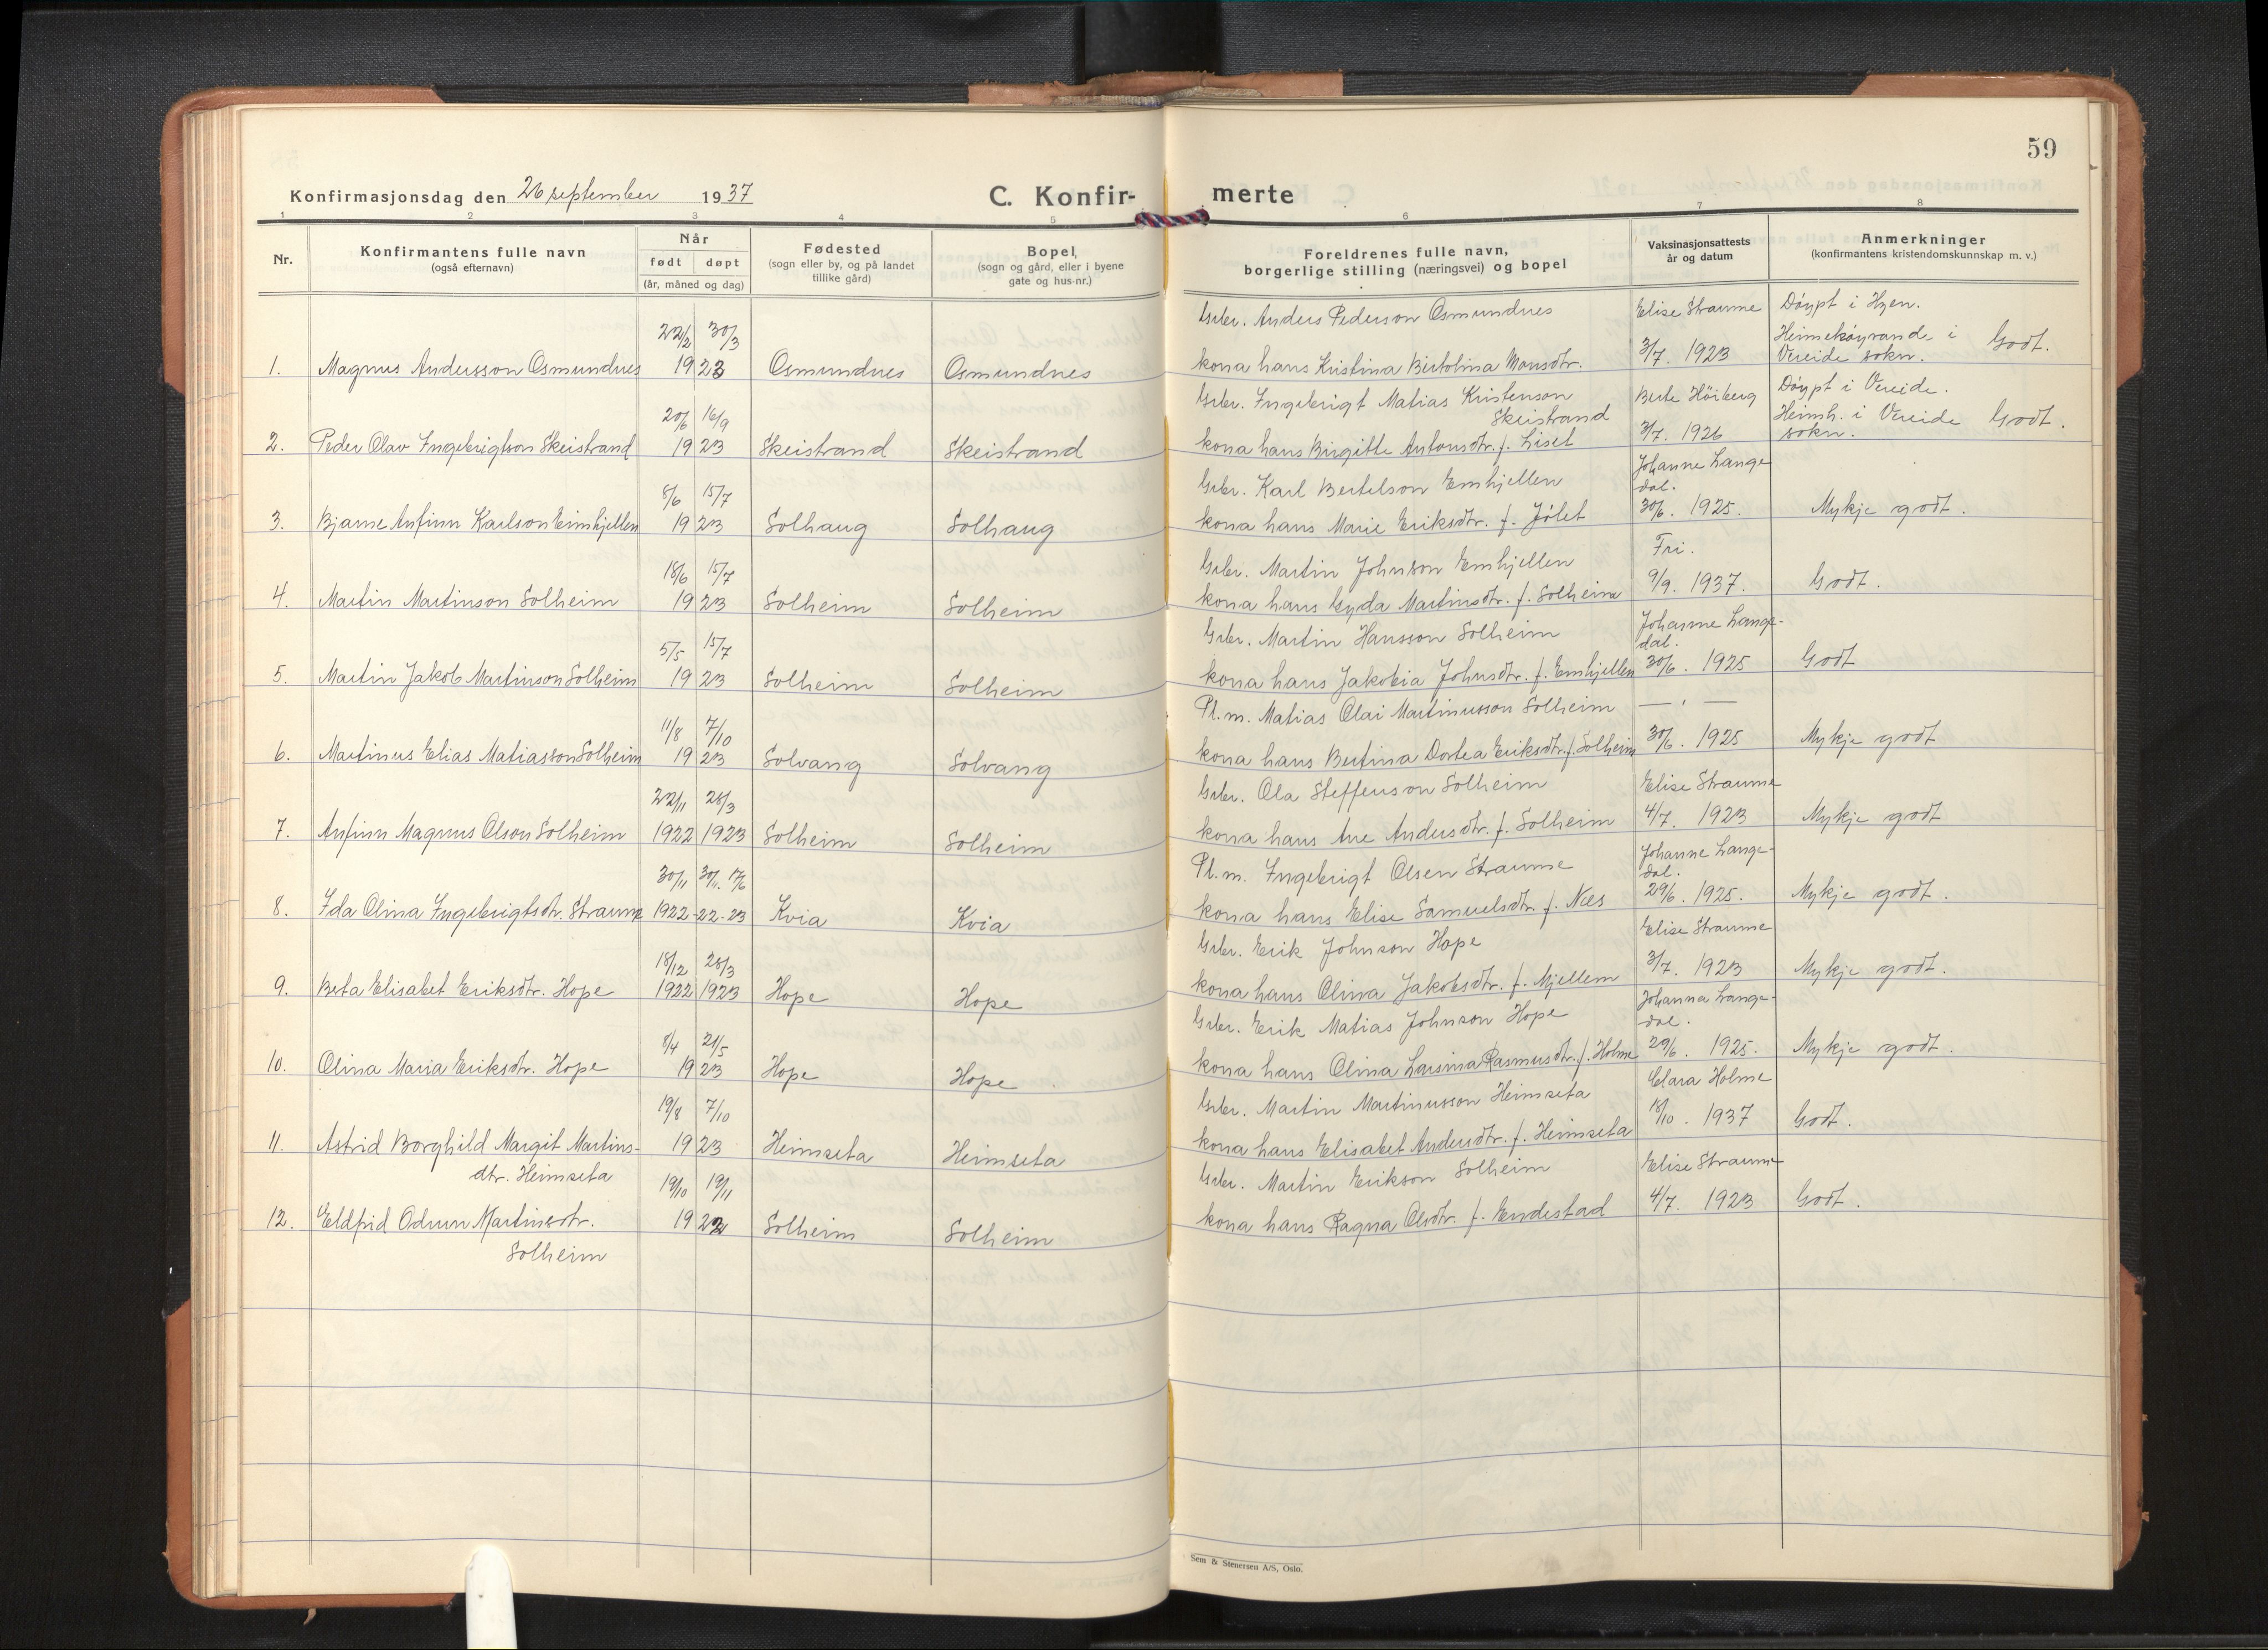 59
Konfirmasjonsdag den 26 september 1937
C. Konfir-
merte
1 2 3 4 5 6 7 8
Nr.
Konfirmantens fulle navn
(også efternavn)
Når
født døpt
(år, måned og dag)
Fødested
(sogn eller by, og på landet
tillike gård)
Bopel,
(sogn og gård, eller i byene
gate og hus-nr.)
Foreldrenes fulle navn,
borgerlige stilling (næringsvei) og bopel
Vaksinasjonsattests
år og datum
Anmerkninger
(konfirmantens kristendomskunnskap m. v.)
Grbr. Anders Pederson Osmundnes Elise Straume Døypt i Hyen.
22/2 30/3 Heimehøyrande i
1. Magnus Andersson Osmundnes 1923 Osmundnes Osmundnes kona hans Kristina Bertolina Monsdtr. 3/7. 1923 Vereide sokn. Godt.
Grbr. Ingebrigt Matias Kristenson Berte Höiberg Døypt i Vereide.
20/6 16/9 Skeistrand Heimh. i Vereide Godt.
2. Peder Olav Ingebrigtson Skeistrand 1923 Skeistrand Skeistrand kona hans Birgitte Antonsdtr. f. Liset 3/7. 1926 sokn.
Grbr. Karl Bertelson Emhjellen Johanne Lange
8/6 15/7 dal.
3. Bjarne Anfinn Karlson Eimhjellen 1923 Solhaug Solhaug kona hans Marie Eriksdtr. f. Jølet 30/6. 1925. Mykje godt.
Grbr. Martin Johnson Emhjellen Fri.
18/6 15/7
4. Martin Martinson Solheim 1923 Solheim Solheim kona hans Gyda Martinsdtr. f. Solheim 9/9. 1937. Godt.
Grbr. Martin Hansson Solheim Johanne Lange-
5/5 15/7 dal.
5. Martin Jakob Martinson Solheim 1923 Solheim Solheim kona hans Jakobia Johnsdtr. f. Emhjellen 30/6. 1925 Godt
Pl.m. Matias Olai Martinusson Solheim — " —
11/8 7/10
6. Martinus Elias Matiasson Solheim 1923 Solvang Solvang kona hans Bertina Dortea Eriksdtr. f. Solheim 30/6. 1925 Mykje godt
Grbr. Ola Steffenson Solheim Elise Straume
22/11 28/3
7. Anfinn Magnus Olson Solheim 1922 1923 Solheim Solheim kona hans Ane Andersdtr. f. Solheim 4/7. 1923 Mykje godt
Pl.m. Ingebrigt Olsen Straume Johanne Lange-
30/11 30/11. 17/6 dal.
8. Ida Olina Ingebrigtsdtr. Straume 1922-22-23 Kvia Kvia kona hans Elise Samuelsdtr. f. Næs 29/6. 1925. Mykje godt.
Grbr. Erik Johnson Hope Elise Straume
18/12 28/3
9. Berta Elisabet Eriksdtr. Hope 1922 1923 Hope Hope kona hans Olina Jakobsdtr. f. Mjellem 3/7. 1923 Mykje godt.
Grbr. Erik Matias Johnson Hope Johanna Lange-
8/4 21/5 dal.
10. Olina Maria Eriksdtr. Hope 1923 Hope Hope kona hans Olina Larsina Rasmusdtr. f. Holme 29/6. 1925. Mykje godt.
Grbr. Martin Martinusson Heimseta Clara Holme
19/8 7/10
11. Astrid Borghild Margit Martins- 1923 Heimseta Heimseta kona hans Elisabet Andersdtr. f. Heimseta 18/10. 1937 Godt.
dtr. Heimseta
Grbr. Martin Erikson Solheim Elise Straume
19/10 19/11
12. Eldfrid Odrun Martinsdtr. 1922 Solheim Solheim kona hans Ragna Olsdtr. f. Endestad 4/7. 1923 Godt.
Solheim
Sem & Stenersen A/S, Oslo.